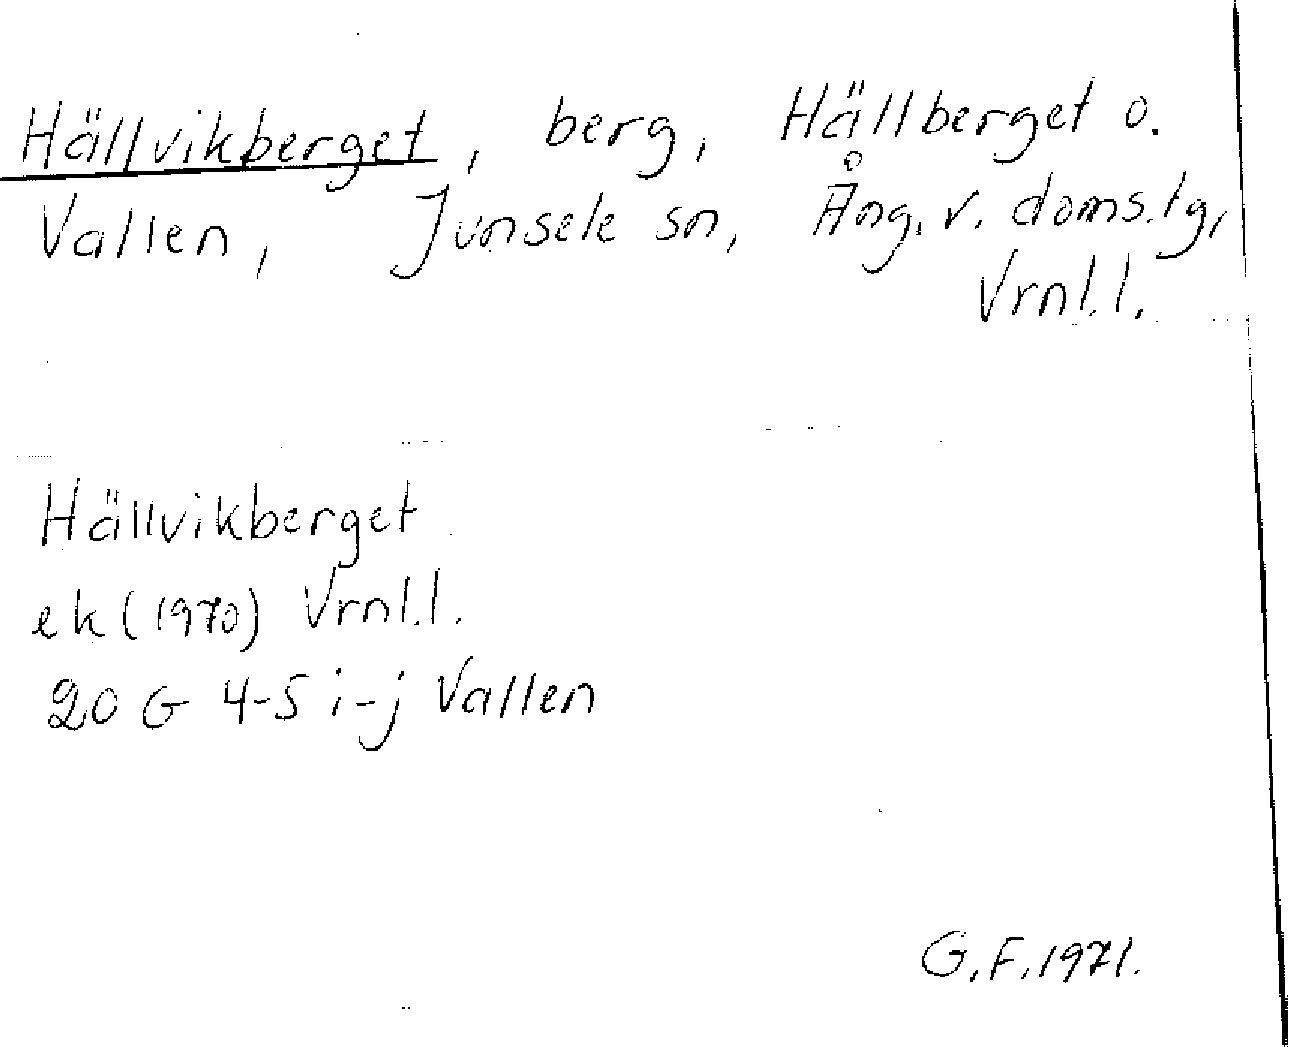 Hällvikberget, berg, Hällberget o.
Vallen, Junsele sn, Ång. v. doms.tg,
Vrnl.l.
Hällvikberget
ek (1970) Vrnl.l.
20 G 4-5 i-j Vallen
G.F. 1971.